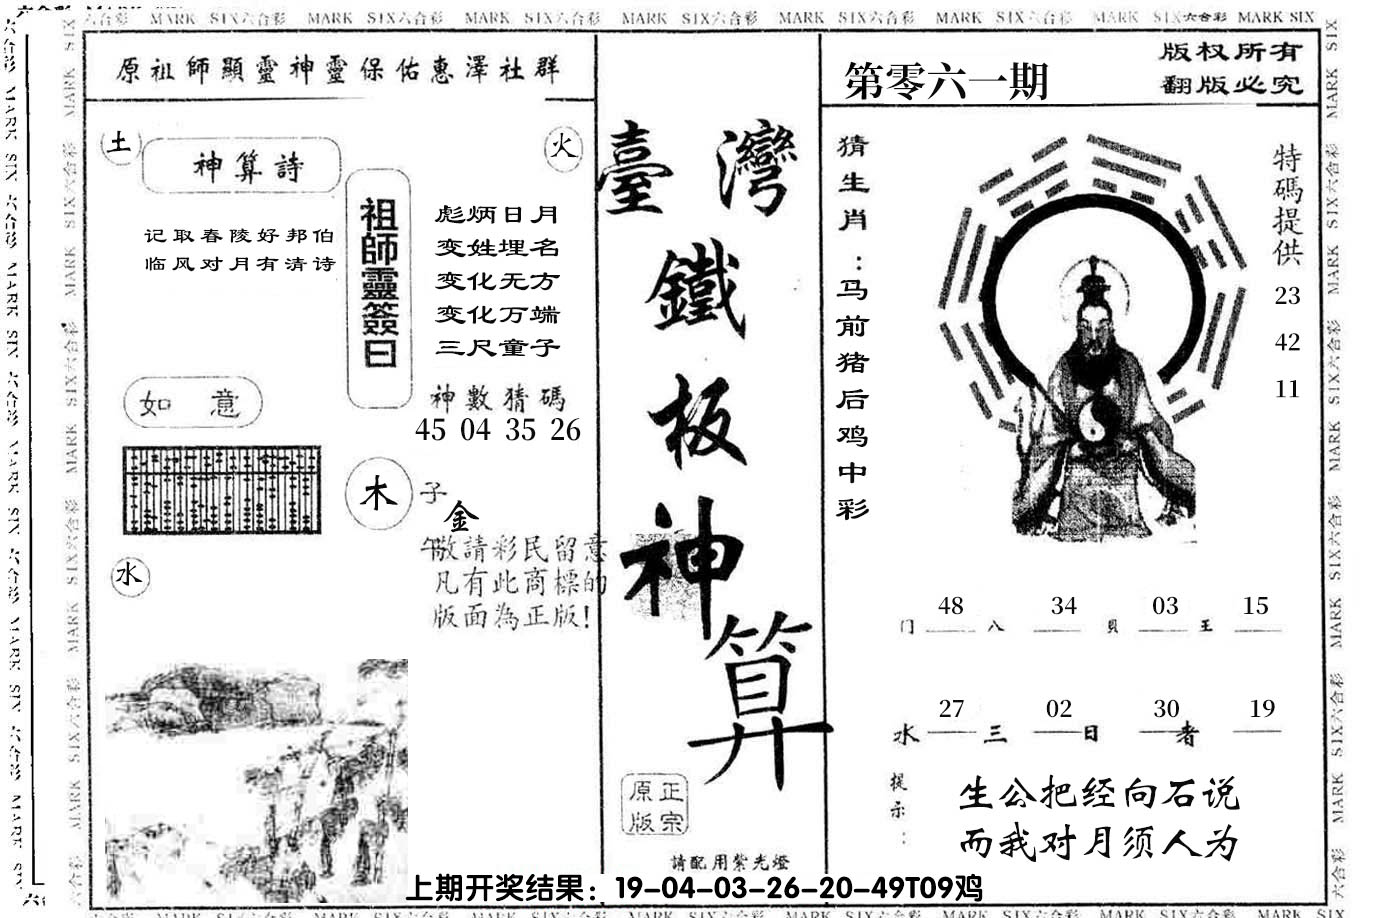 MARK SIX六合彩 MARK SIX六合彩 MARK SIX六合彩 MARK SIX六合彩 MARK SIX六合彩 MARK SIX六合彩 MARK SIX六合彩 MARK SIX
原祖師顯靈神靈保佑惠澤社群
土
神算詩
火
记取春陵好邦伯
临风对月有清诗
祖師靈簽曰
彪炳日月
变姓埋名
变化无方
变化万端
三尺童子
神數猜碼
45 04 35 26
如意
木
子
金
午
敬請彩民留意
凡有此商標的
版面為正版!
水
臺灣
鐵
板
神
算
正宗
原版
請配用紫光燈
第零六一期
版权所有
翻版必究
猜生肖:马前猪后鸡中彩
特碼提供
23
42
11
48 34 03 15
门 八 貝 王
27 02 30 19
水 三 日 者
提示:
生公把经向石说
而我对月须人为
上期开奖结果：19-04-03-26-20-49T09鸡